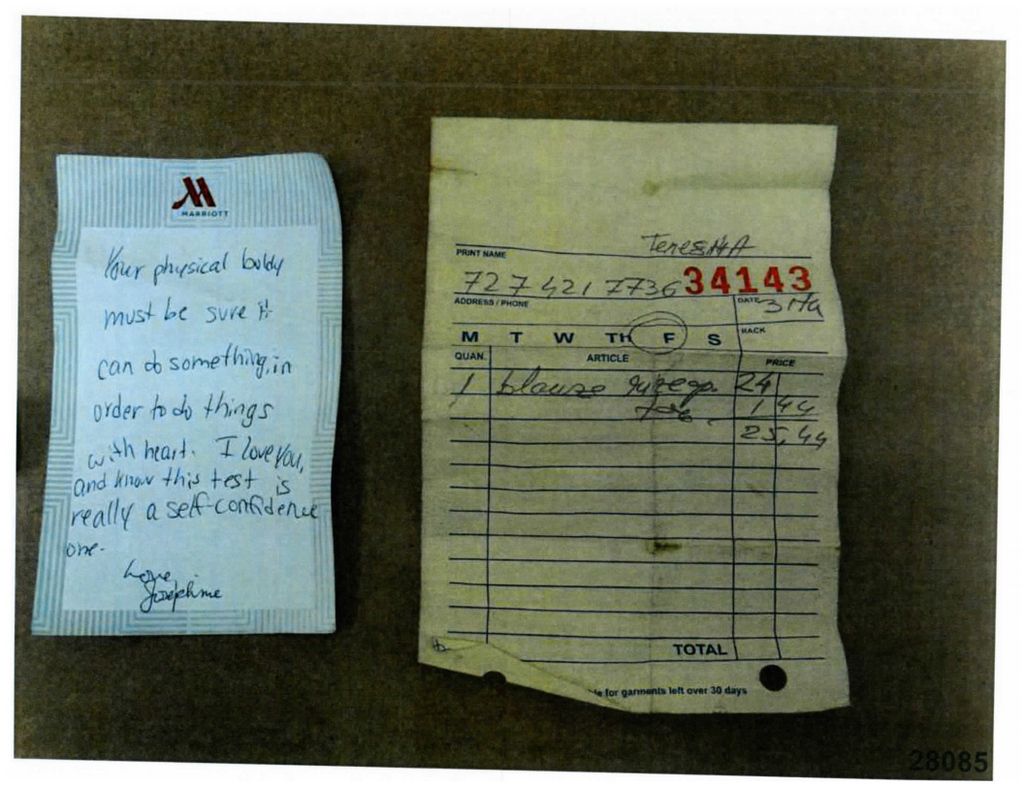 MARRIOTT
Your physical body
must be sure it
can do something, in
order to do things
with heart. I love you,
and know this test is
really a self-confidence
one.
Love
Josephine
PRINT NAME
727 421 7736 34143
ADDRESS / PHONE DATE
M T W TH F S BACK
QUAN. ARTICLE PRICE
1 24
1 44
25,44
TOTAL
for garments left over 30 days
28085